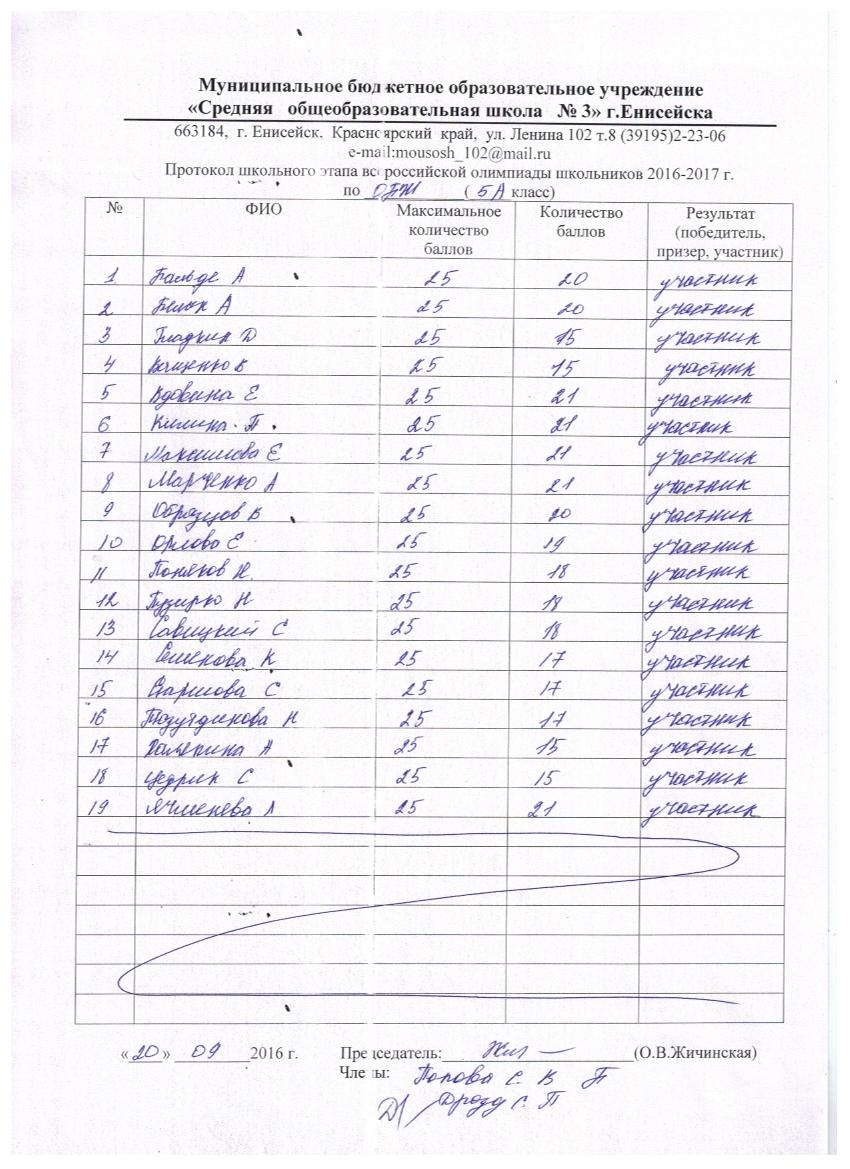 Муниципальное бюджетное образовательное учреждение
«Средняя общеобразовательная школа № 3» г.Енисейска
663184, г. Енисейск. Красноярский край, ул. Ленина 102 т.8 (39195)2-23-06
e-mail:mousosh_102@mail.ru
Протокол школьного этапа всероссийской олимпиады школьников 2016-2017 г.
по ОБЖ (5А класс)
№ ФИО Максимальное количество баллов Количество баллов Результат (победитель, призер, участник)
1 Бальде А 25 20 участник
2 Белик А 25 20 участник
3 Гладкин D 25 15 участник
4 В 25 15 участник
5 Вдовина Е 25 21 участник
6 Килина П. 25 21 участник
7 Максимова Е 25 21 участник
8 Марченко А 25 21 участник
9 Образцов В 25 20 участник
10 Орлова Е 25 19 участник
11 Поляков Н. 25 18 участник
12 Пузирко Н 25 18 участник
13 Савицкий С 25 18 участник
14 Семенова К 25 17 участник
15 С 25 17 участник
16 Тазутдинова Н 25 17 участник
17 А 25 15 участник
18 Цедрик С 25 15 участник
19 Ячменева Л 25 21 участник
«20» 09 2016 г. Председатель: (О.В.Жичинская)
Члены: Попова С. В П
Дрозд С. П